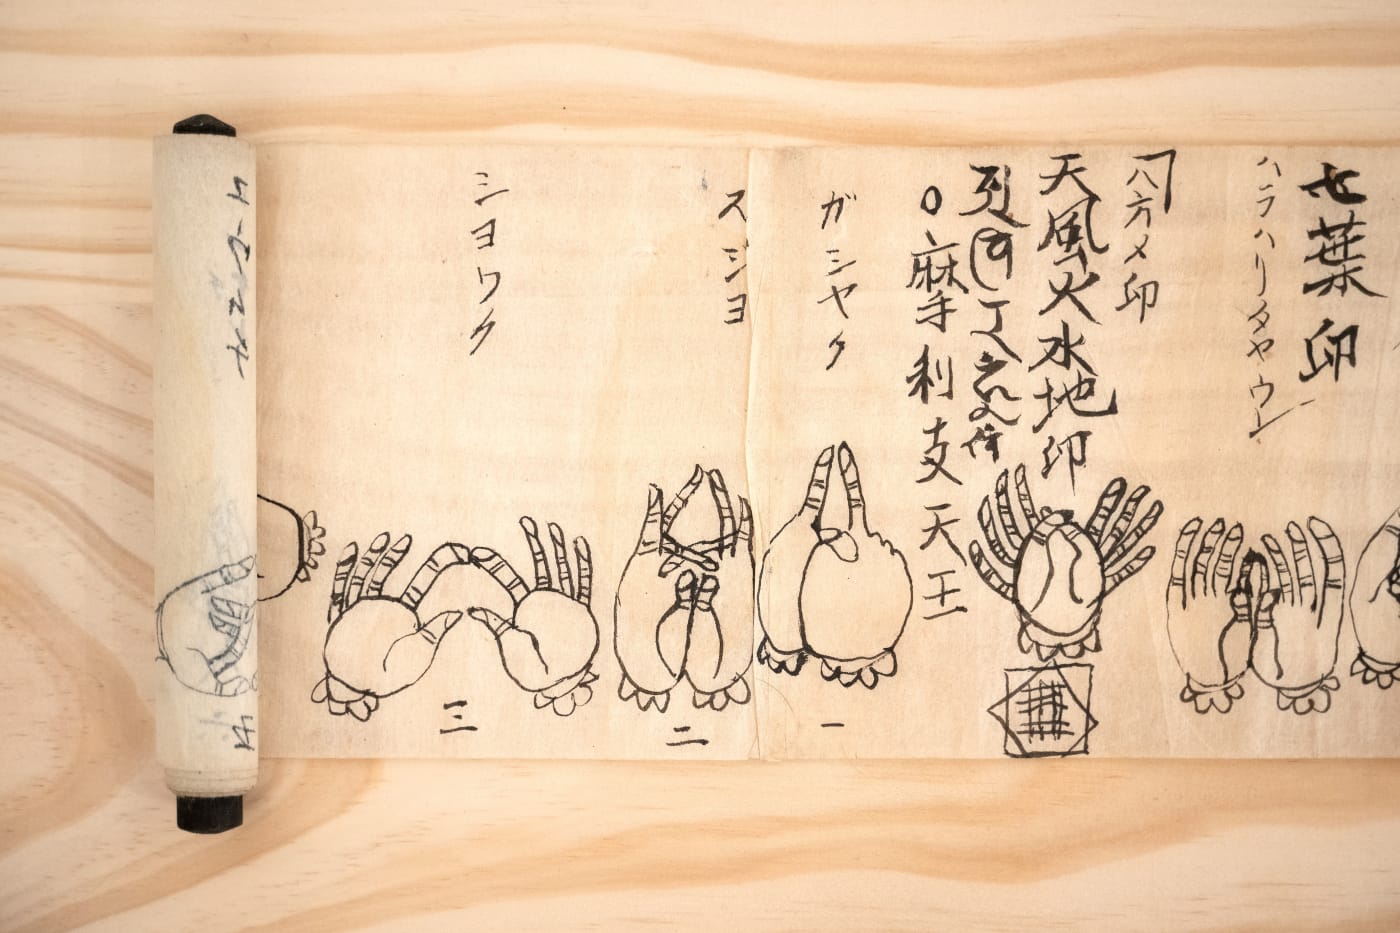 七葉印
ハラハリタヤウン
八方〆印
天風火水地印
○麻手利支天王
ガシヤク
一
スジヨ
二
シヨワク
三